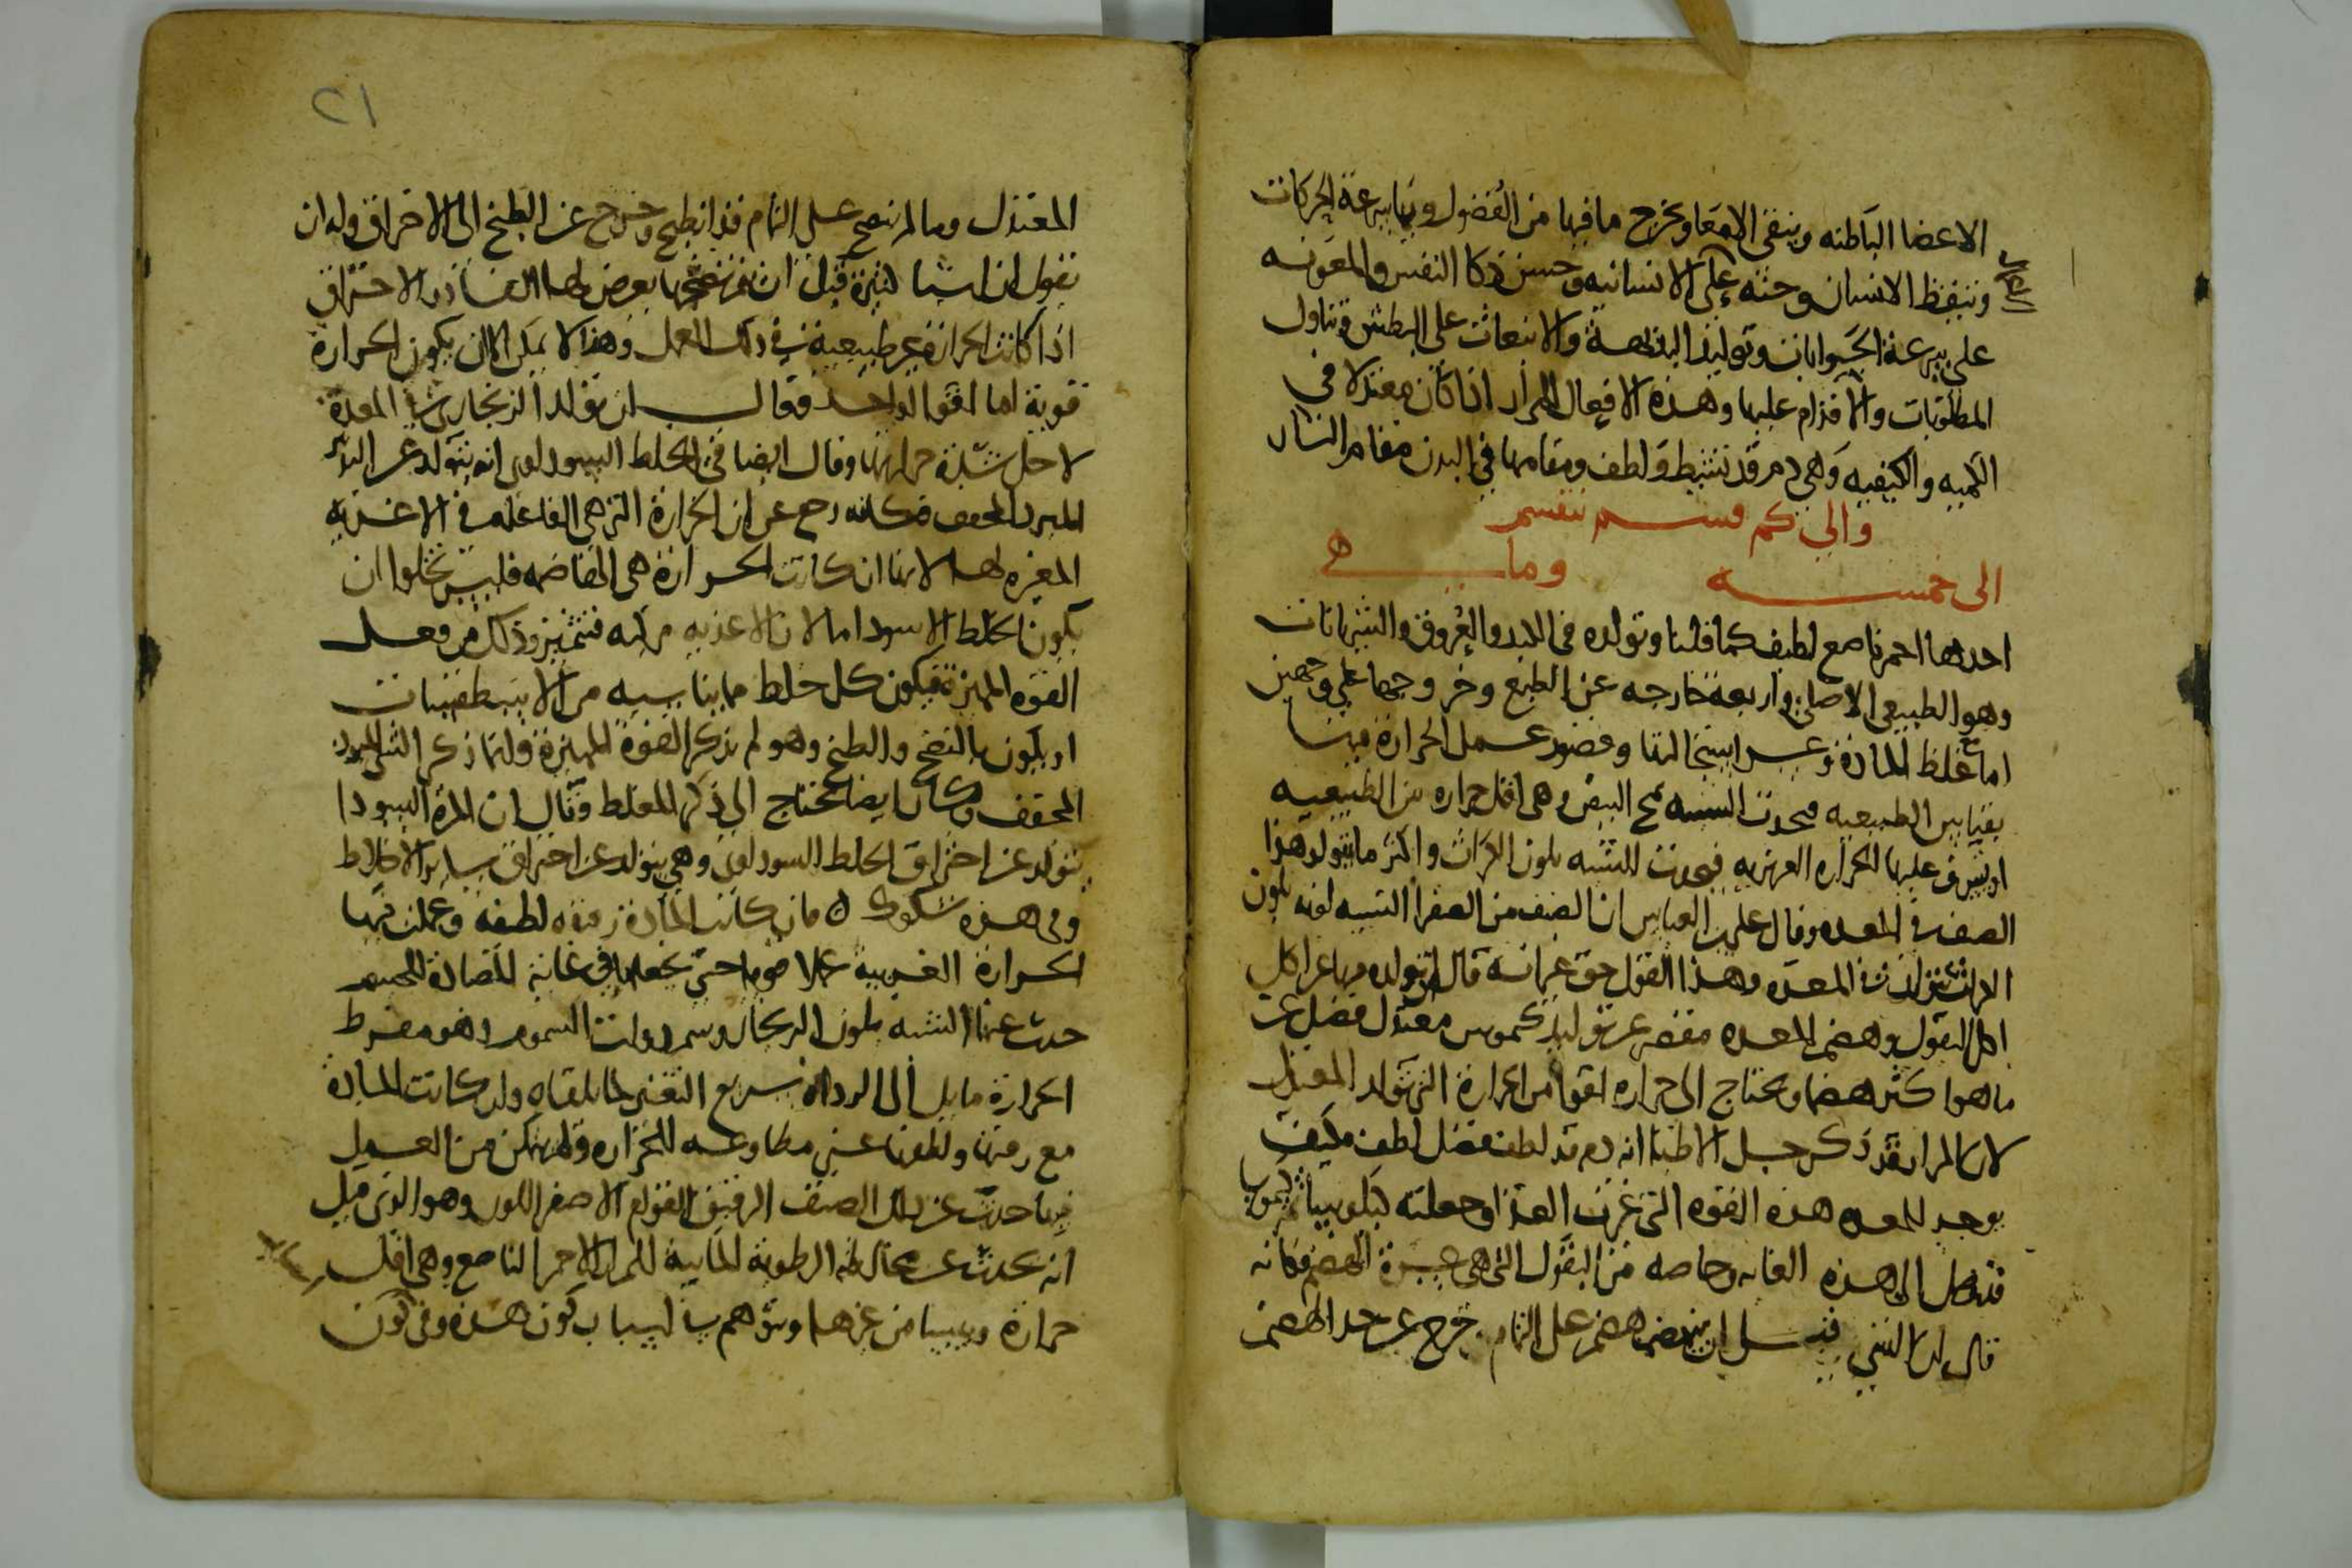 الاعضا الباطنه وينقى الامعا ويخرج ما فيها من الفضول وبها سرعة الحركات
وتيقظ الانسان وحثه على الانسانيه وحسن ذكا النفس والمعونه
على سرعة الجوابات وتوليد البداهة والانبعاث على البطش وتناول
المطلوبات والاقدام عليها وهذه الافعال للمرار اذا كان معتدلا في
الكميه والكيفيه وهي دم قد تشيط ولطف ومقامها في البدن مقام النار
والى كم قسم تنقسم
الى خمسه وما هي
احدها احمر ناصع لطيف كما قلنا وتولده في الكبد والعروق والشريانات
وهو الطبيعي الاصلي واربعة خارجه عن الطبع وخروجها على وجهين
اما مع غلظ المادة وعسر استحالتها وقصور عمل الحرارة فيها
بقياس الطبيعيه فيحدث الشبيه بمح البيض وهي اقل حراره من الطبيعيه
او تستولى عليها الحراره الغريبه فيحدث الشبيه بلون الكراث واكثر ما يتولد هذا
الصنف في المعده وقال على بن العباس ان الصنف من الصفرا الشبيه لونه بلون
الكراث يتولد في المعده وهذا القول حق غير انه قال ان تولده فيها عن اكل
اكل البقول وهضم المعده مقصر عن توليد كيموس معتدل فضل عن
ما هو اكثر هضما ويحتاج الى حراره اقوا من الحرارة التي تولد المعتدل
لان المرار فقد ذكر جل الاطبا انه دم قد لطف فضل لطف فكيف
يوجد للمعده هذه القوه التي غيرت الغذا وجعلته كيلوسيا ثم كيموسيا
فتصل الى هذه الغايه وخاصه من البقول التي هي عسرة الهضم فكانه
قال ان الشي قبل ان ينهضم هضم على التمام خرج عن حد الهضم
٢١
المعتدل وما لم ينضج على التمام قد انطبخ وخرج عن الطبخ الى الاحتراق وله ان
نقول ان اشيا كثيرة قبل ان يتم نضجها يعرض لها الفساد والاحتراق
اذا كانت الحرارة غير طبيعية في ذلك العمل وهذا لا يمكن الا ان يكون الحرارة
قوية اما القول الواحد فقال ان تولد الزنجاري في المعدة
لاجل شدة حرارتها وقال ايضا في الخلط السوداوي انه يتولد عن الشي
المبرد المجفف فكانه رجع عن ان الحرارة التي هي الفاعله في الاغذيه
المغيره لها لانها ان كانت الحرارة هي الهاضمه فليس تخلوا ان
يكون الخلط الاسود اما لان الاغذيه مركبه فتتميز وذلك من فعل
القوه المميزة فيكون كل خلط مما يناسبه من الاسطقسات
او يكون بالنضج والطبخ وهو لم يذكر القوة المميزة وانما ذكر الشي المبرد
المجفف وكان ايضا يحتاج الى ذكر المغلظ وقال ان المرة السودا
تتولد عن احتراق الخلط السوداوي وهي يتولد عن احتراق ساير الاخلاط
وفي هذه شكوك فان كانت المادة رقيقه لطيفه وعملت فيها
الحرارة الغريبة عملا قويا حتى يجعلها في غاية المضادة للجسم
حدث عنها الشبيه بلون الزنجار وسم ذوات السموم وهو مفرط
الحرارة مايل الى الرداة سريع التغير لما يلقاه وان كانت المادة
مع رقتها ولطفها غير مطاوعه للحراره ولم يتمكن من العمل
فيها حدث عن ذلك الصنف الرقيق القوام الاصفر اللون وهو الذي قيل
انه يحدث عن مخالطه الرطوبة المائية للمرار الاحمر الناصع وهي اقل
حرارة ويبسا من غيرها ويتوهم في اسباب كون هذه وفي كون